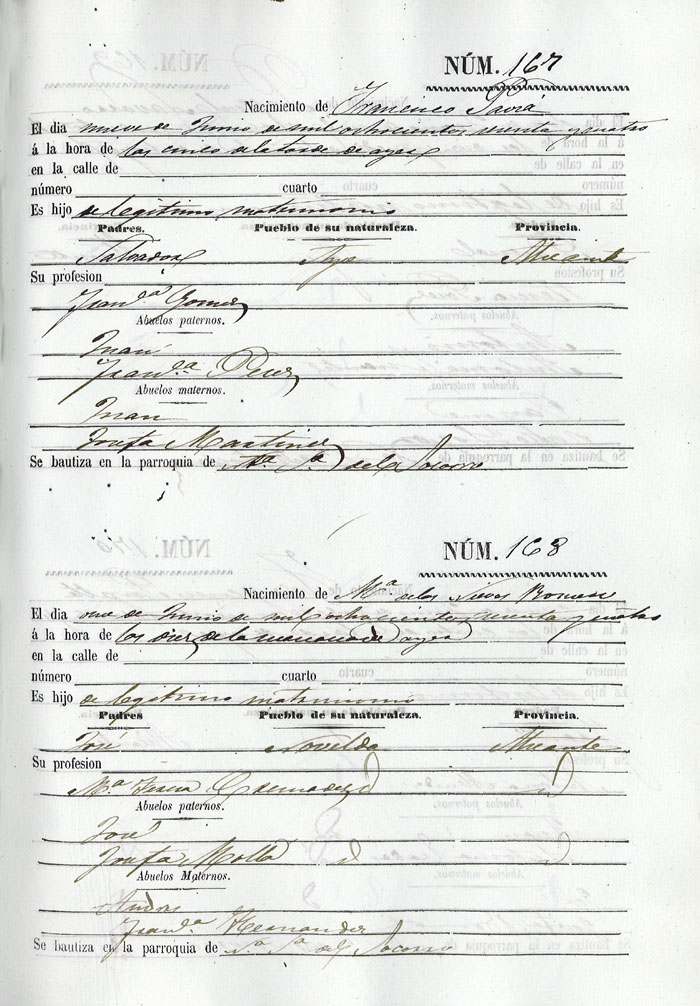 NÚM. 167
Nacimiento de Francisco Pavia
El dia nueve de Junio de mil ochocientos sesenta y cuatro
á la hora de las cinco de la tarde de ayer
en la calle de
número cuarto
Es hijo de legitimo matrimonio
Padres. Pueblo de su naturaleza. Provincia.
Salvador Aspe Alicante
Su profesion
Fran.ca Gomez
Abuelos paternos.
Juan
Fran.ca Perez
Abuelos maternos.
Juan
Josefa Martinez
Se bautiza en la parroquia de Nª Sª del Socorro
NÚM. 168
Nacimiento de Mª de las Nieves
El dia once de Junio de mil ochocientos sesenta y cuatro
á la hora de las diez de la mañana de ayer
en la calle de
número cuarto
Es hijo de legitimo matrimonio
Padres Pueblo de su naturaleza. Provincia.
José Novelda Alicante
Su profesion
Mª
Abuelos paternos.
José
Josefa Molla
Abuelos Maternos.
Andres
Fran.ca Hernandez
Se bautiza en la parroquia de Nª Sª del Socorro